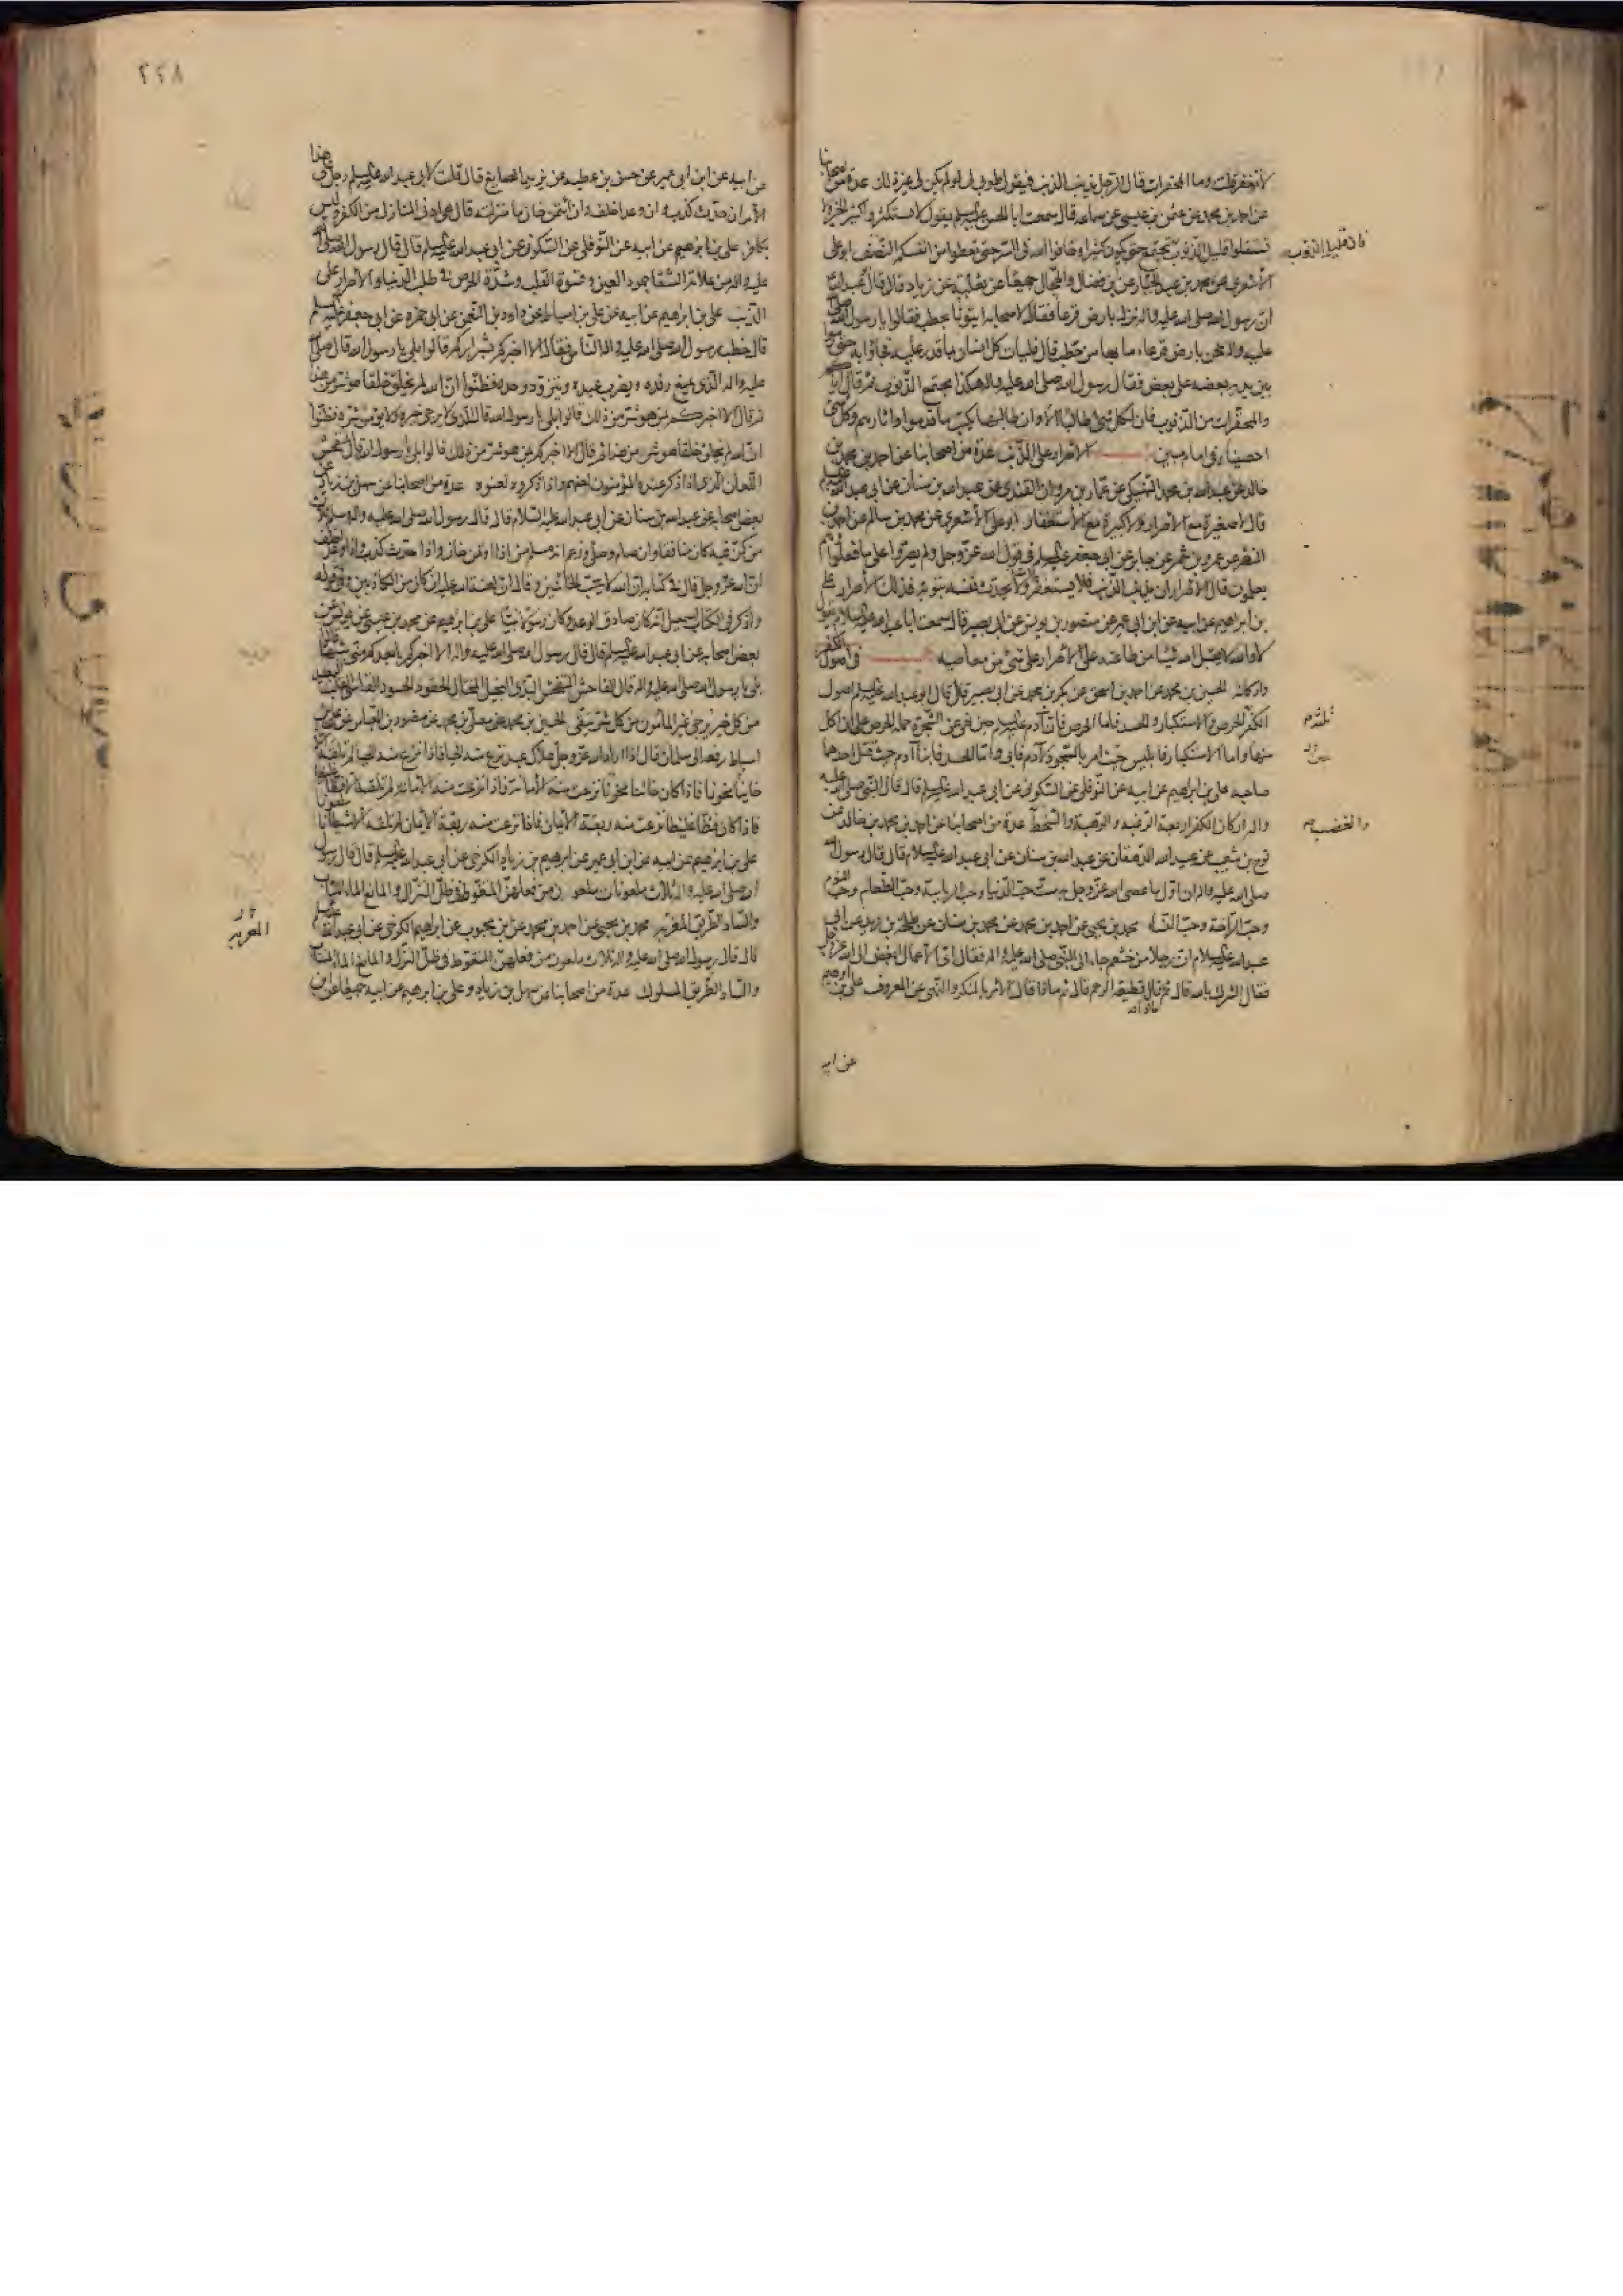 لا تغفر قلت وما المحقرات قال الرجل يذنب الذنب فيقول طوبى لى لو لم يكن لى غير ذلك عدة من اصحابنا
عن احمد بن محمد عن عثمن بن عيسى عن سماعه قال سمعت ابا الحسن عليسلم يقول لا تستكثروا كثير الخير ولا
تستقلوا قليل الذنوب تجتمع حتى يكون كثيرا وخافوا الله فى السر حتى تعطوا من انفسكم النصف ابو على
فان قليل الذنوب
الأشعرى عن محمد بن عبد الجبار عن بن فضال والحجال جميعا عن ثعلبة عن زياد قال قال ابو عبد الله
ان رسول الله صلى الله عليه واله نزل بارض قرعا فقال لاصحابه ايتونا بحطب فقالوا يا رسول الله صلى الله
عليه واله نحن بارض قرعاء ما بها من حطب قال فليات كل انسان بما قدر عليه فجاؤا به حتى رموا
بين يديه بعضه على بعض فقال رسول الله صلى الله عليه واله هكذا تجتمع الذنوب ثم قال اياكم
والمحقرات من الذنوب فان لكل شئ طالبا الا وان طالبها يكتب ما قدموا واثارهم وكل شئ
احصيناه فى امام مبين الاصرار على الذنب عدة من اصحابنا عن احمد بن محمد بن
خالد عن عبد الله بن محمد النهيكى عن عمار بن مروان القندى عن عبد الله بن سنان عن ابى عبد الله عليسلم
قال لا صغيرة مع الاصرار ولا كبيرة مع الأستغفار ابو على الأشعرى عن محمد بن سالم عن احمد بن
النضر عن عمرو بن شمر عن جابر عن ابى جعفر عليسلم فى قول الله عز وجل ولم يصروا على ما فعلوا وهم
يعلمون قال الأصرار ان يذنب الذنب فلا يستغفر ولا يحدث نفسه بتوبة فذلك الأصرار على
بن ابراهيم عن ابيه عن ابن ابى عمير عن منصور بن يونس عن ابى بصير قال سمعت ابا عبد الله عليه السلام يقول
لا والله لا يقبل الله شيئا من طاعته على الأصرار على شئ من معاصيه فى اصول الكفر
واركانه الحسين بن محمد عن احمد بن اسحق عن بكر بن محمد عن ابى بصير قال قال ابو عبد الله عليسلم اصول
الكفر الحرص والاستكبار والحسد فاما الحرص فان آدم عليسلم حين نهى عن الشجرة حمله الحرص على ان اكل
منها واما الاستكبار فابليس حيث امر بالسجود لآدم فابى واما الحسد فابنا آدم حيث قتل احدهما
صاحبه على بن ابراهيم عن ابيه عن النوفلى عن السكونى عن ابى عبد الله عليسلم قال قال النبى صلى الله عليه
واله اركان الكفر اربعة الرغبه والرهبة والسخط عدة من اصحابنا عن احمد بن محمد بن خالد عن
والغضب
نوح بن شعيب عن عبيد الله الدهقان عن عبد الله بن سنان عن ابى عبد الله عليسلام قال قال رسول الله
صلى الله عليه واله ان اول ما عصى الله عز وجل به ست حب الدنيا وحب الرياسة وحب الطعام وحب النوم
وحب الراحة وحب النساء محمد بن يحيى عن احمد بن محمد عن محمد بن سنان عن طلحة بن زيد عن ابى
عبد الله عليسلام ان رجلا من خثعم جاء الى النبى صلى الله عليه واله فقال اى الأعمال ابغض الى الله عز وجل
فقال الشرك بالله قال ثم ماذا قال قطيعة الرحم قال ثم ماذا قال الأمر بالمنكر والنهى عن المعروف على بن ابراهيم
عن ابيه
٢٢٨
عن ابيه عن ابن ابى عمير عن حسن بن عطيه عن يزيد الصايغ قال قلت لابى عبد الله عليسلم رجل على هذا
الأمر ان حدث كذب وان وعد اخلف وان ائتمن خان ما منزلته قال هى ادنى المنازل من الكفر وليس
بكافر على بن ابرهيم عن ابيه عن النوفلى عن السكونى عن ابى عبد الله عليسلم قال قال رسول الله صلى الله
عليه واله من علامة الشقا جمود العين وقسوة القلب وشدة الحرص فى طلب الدنيا والأصرار على
الذنب على بن ابراهيم عن ابيه عن على بن اسباط عن داود بن النعمن عن ابى حمزه عن ابى جعفر عليسلم
قال خطب رسول الله صلى الله عليه واله الناس فقال الا اخبركم بشراركم قالوا بلى يا رسول الله قال صلى الله
عليه واله الذى يمنع رفده ويضرب عبده ويتزود وحده فظنوا ان الله لم يخلق خلقا هو شر من هذا
ثم قال الا اخبركم بمن هو شر من ذلك قالوا بلى يا رسول الله قال الذى لا يرجى خيره ولا يؤمن شره فظنوا
ان الله لم يخلق خلقا هو شر من هذا ثم قال الا اخبركم بمن هو شر من ذلك قالوا بلى يا رسول الله قال المتفحش
اللعان الذى اذا ذكر عنده المؤمنون لعنهم واذا ذكروه لعنوه عدة من اصحابنا عن سهل بن زياد عن
بعض اصحابه عن عبد الله بن سنان عن ابى عبد الله عليه السلام قال قال رسول الله صلى الله عليه واله وسلم ثلاث
من كن فيه كان منافقا وان صام وصلى وزعم انه مسلم من اذا ائتمن خان واذا حدث كذب واذا وعد اخلف
ان الله عز وجل قال فى كتابه ان الله لا يحب الخائنين وقال ان لعنة الله عليه ان كان من الكاذبين وفى قوله
واذكر فى الكتاب اسمعيل انه كان صادق الوعد وكان رسولا نبيا على بن ابرهيم عن محمد بن عيسى عن يونس عن
بعض اصحابه عن ابى عبد الله عليسلم قال قال رسول الله صلى الله عليه واله الا اخبركم بابعدكم منى شبها قالوا
بلى يا رسول الله صلى الله عليه واله قال الفاحش المتفحش البذى البخيل المختال الحقود الحسود القاسى القلب البعيد
من كل خير يرجى غير المأمون من كل شر يتقى الحسين بن محمد عن معلى بن محمد عن منصور بن العباس عن على بن
اسباط رفعه الى سلمان قال اذا اراد الله عز وجل هلاك عبد نزع منه الحيا فاذا نزع منه الحيا لم تلقه الا
خاينا مخونا فاذا كان خائنا مخونا نزعت منه الأمانة فاذا نزعت منه الأمانة لم تلقه الا فظا غليظا
فاذا كان فظا غليظا نزعت منه ربقة الأيمان فاذا نزعت منه ربقة الأيمان لم تلقه الا شيطانا ملعونا
على بن ابرهيم عن ابيه عن ابن ابى عمير عن ابرهيم بن زياد الكرخى عن ابى عبد الله عليسلم قال قال رسول
الله صلى الله عليه واله ثلاث ملعونات ملعون من فعلهن المتغوط فى ظل النزال والمانع الماء المنتاب
والساد الطريق المعربة محمد بن يحيى عن احمد بن محمد عن بن محبوب عن ابراهيم الكرخى عن ابى عبد الله عليسلم
قال قال رسول الله صلى الله عليه واله ثلاث ملعون من فعلهن المتغوط فى ظل النزل والمانع الماء المنتاب
والساد الطريق المسلوك عدة من اصحابنا عن سهل بن زياد وعلى بن ابرهيم عن ابيه جميعا عن بن